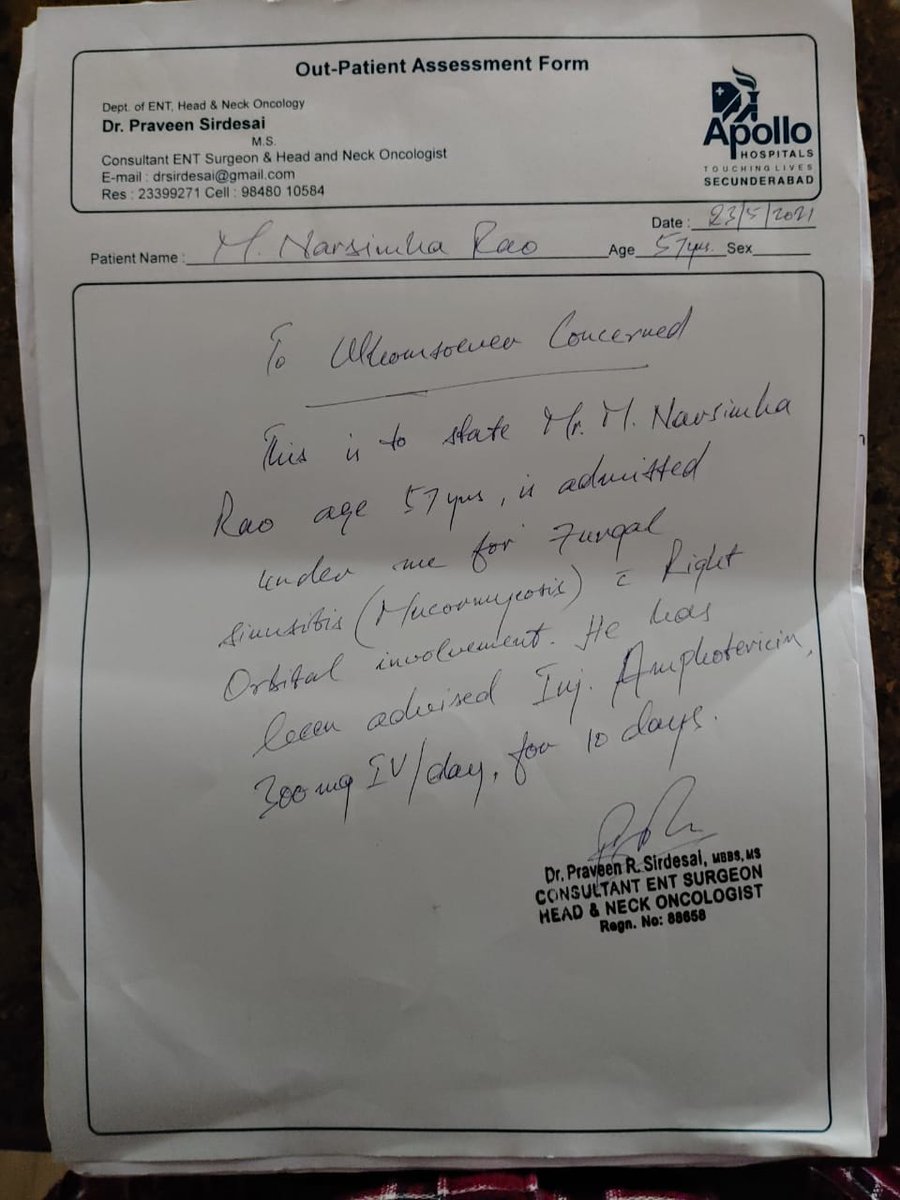 Out-Patient Assessment Form
Dept. of ENT, Head & Neck Oncology
Dr. Praveen Sirdesai
M.S.
Consultant ENT Surgeon & Head and Neck Oncologist
E-mail : drsirdesai@gmail.com
Res : 23399271 Cell : 98480 10584
Apollo
HOSPITALS
TOUCHING LIVES
SECUNDERABAD
Date : 23/5/2021
Patient Name : M. Narsimha Rao Age 57yrs. Sex
To Whomsoever Concerned
This is to state Mr. M. Narsimha
Rao age 57 yrs, is admitted
under me for Fungal
Sinusitis (Mucormycosis) c̄ Right
Orbital involvement. He has
been advised Inj. Amphotericin,
300 mg IV/day, for 10 days.
Dr. Praveen R. Sirdesai, MBBS, MS
CONSULTANT ENT SURGEON
HEAD & NECK ONCOLOGIST
Regn. No: 88658